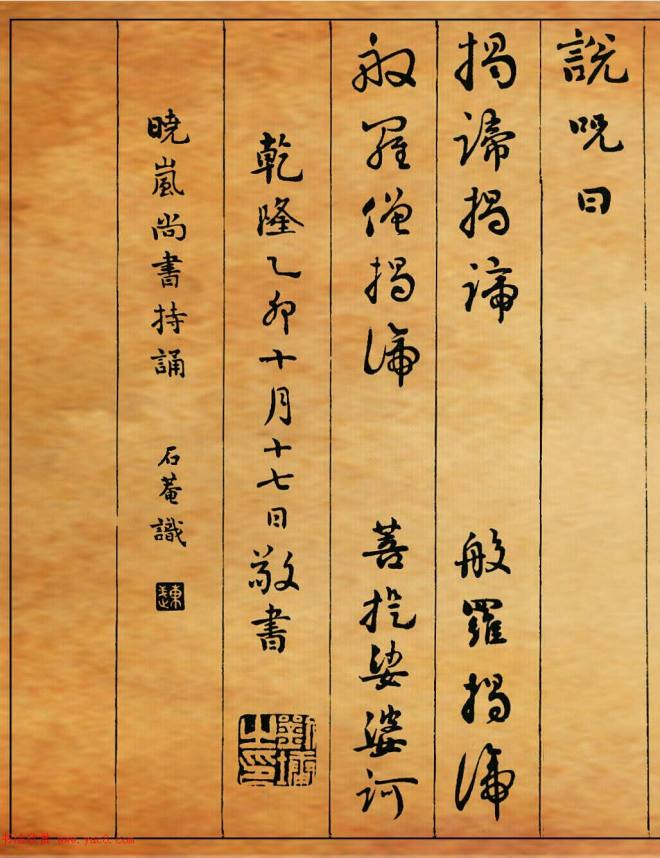 說呪曰
揭諦揭諦 般羅揭諦
般羅僧揭諦 菩提娑婆訶
乾隆乙卯十月十七日敬書
劉墉之印
曉嵐尚書持誦 石菴識
www.yac8.com